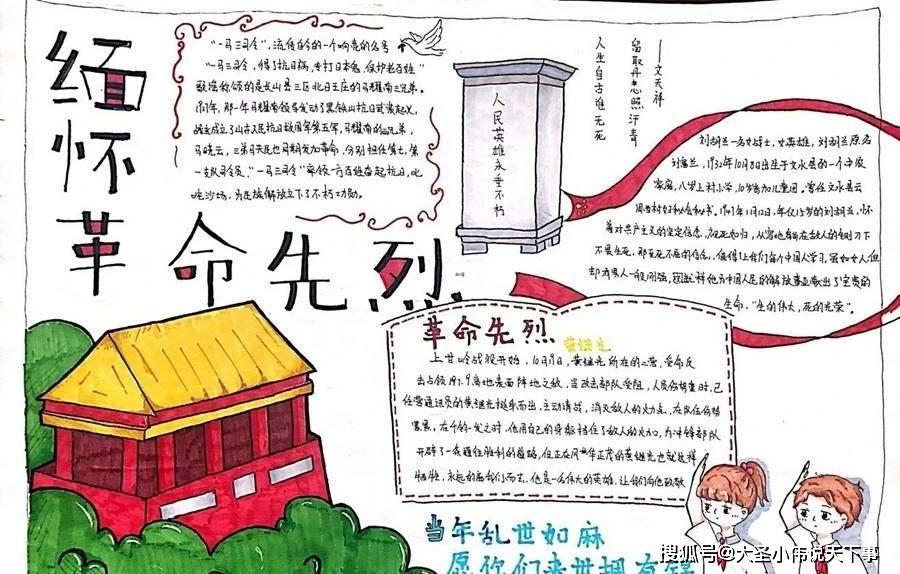 缅怀
革命先烈
"一马三司令",流传至今的一个响亮的名号
"一马三司令,得了抗日病,专打日本鬼,保护老百姓"
歌谣传颂的是长山县三区北旦王庄的马耀南三兄弟。
年,那一年马耀南领导发动了黑铁山抗日武装起义,
马晓云,三弟马天民也同期参加革命,分别担任
"一马三司令"率领一方百姓奋起抗日,叱
咤沙场,为民族解放立下了不朽功勋。
人民英雄永垂不朽
——文天祥
留取丹心照汗青
人生自古谁无死
刘胡兰一名女战士,女英雄,刘胡兰原名
刘富兰,1932年10月8日出生于文水县的一个中农
家庭,八岁上村小学,10岁参加儿童团,曾任文水县云
周西村妇救会秘书。1947年1月12日,年仅15岁的刘胡兰,怀
着对共产主义的坚定信念,视死如归,从容地躺在敌人的铡刀下
不畏生死,那无死不屈的信仰,值得让我们每个中国人学习,虽如女人但
却有男人一般刚强,因此牺牲她为中国人民的解放事业献出了宝贵的
生命,"生的伟大,死的光荣"。
革命先烈
黄继光
上甘岭战役开始,10月19日,黄继光所在的二营,受命反
出占领597.9高地表面阵地之敌,当攻击部队受阻,人员伤势重时,已
任营通讯员的黄继光挺身而出,主动请战,消灭敌人的火力点,在队伍伤势
累累,在千钧一发之时,他用自己的身躯挡住了敌人的火力口,为冲锋部队
开辟了一条通往胜利的道路,但正在风华正茂的黄继光也就这样
牺牲,永远的离我们而去,他是一名伟大的英雄,让我们向他致敬
当年乱世如麻
愿你们来世拥有锦
搜狐号@大圣小伟说天下事